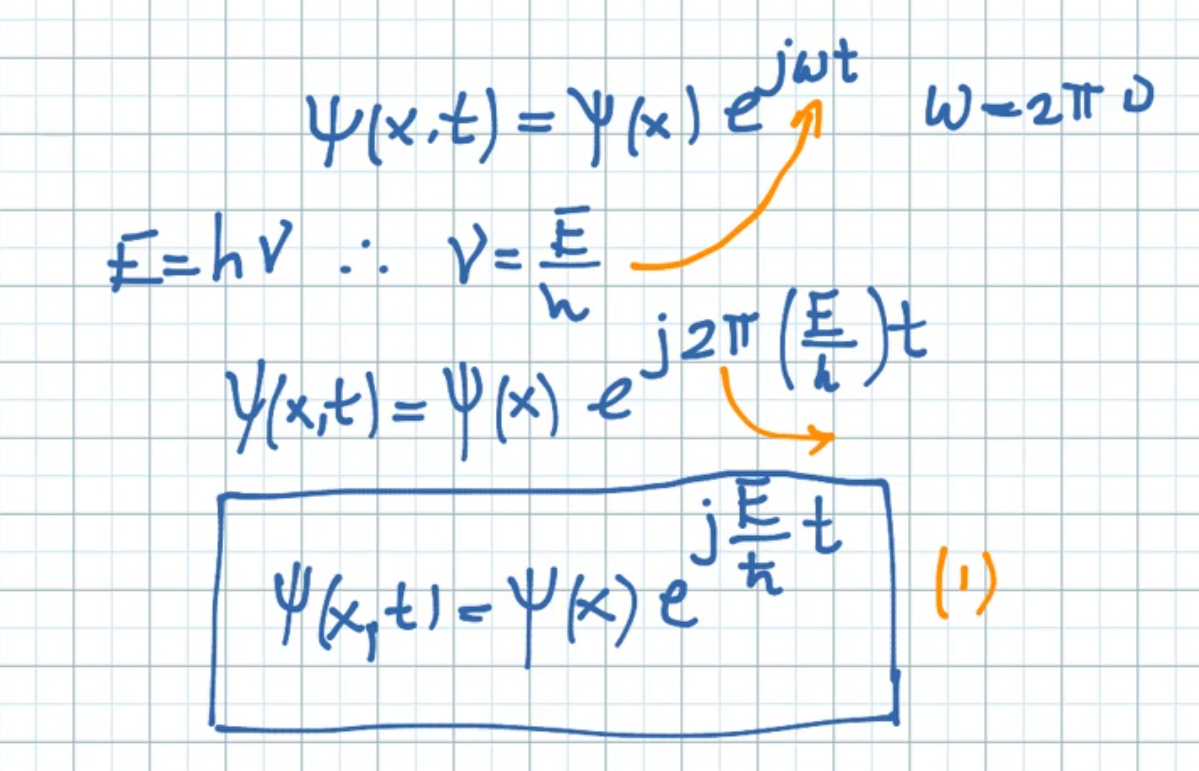 ψ(x,t) = ψ(x) e^{jωt} ω = 2π ν
E = hν ∴ ν = E/h
ψ(x,t) = ψ(x) e^{j2π(E/h)t}
ψ(x,t) = ψ(x) e^{j(E/ħ)t} (1)